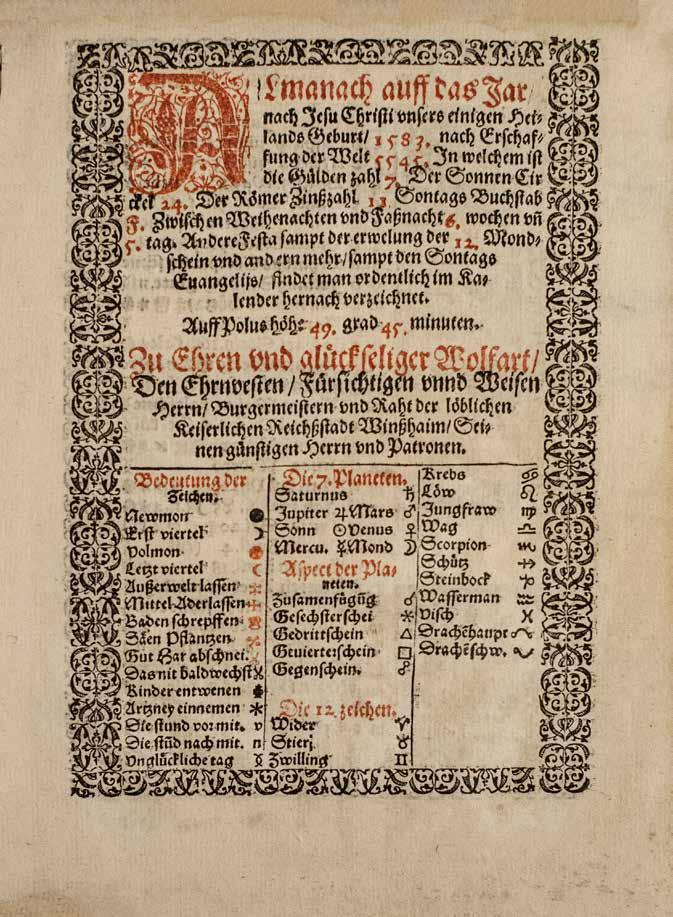 ALmanach auff das Jar/
nach Jesu Christi vnsers einigen Hei-
lands Geburt/ 1583. nach Erschaf-
fung der Welt 5545. In welchem ist
die Gülden zahl 7. Der Sonnen Cir
ckel 24. Der Römer Zinßzahl 11. Sontags Buchstab
F. Zwischen Weihenachten vnd Faßnacht 6. wochen vñ
5. tag. Andere Festa sampt der erwelung der 12. Mond-
schein vnd andern mehr/ sampt den Sontags
Euangelijs/ findet man ordentlich im Ka-
lender hernach verzeichnet.
Auff Polus höhe 49. grad 45. minuten.
Zu Ehren vnd glückseliger Wolfart/
Den Ehrnvesten/ Fürsichtigen vnnd Weisen
Herrn/ Burgermeistern vnd Raht der löblichen
Keiserlichen Reichßstadt Winßhaim/ Sei-
nen günstigen Herrn vnd Patronen.
Bedeutung der
Zeichen.
Newmon ●
Erst viertel ☽
Volmon
Letzt viertel ☾
Außerwelt lassen
Mittel Aderlassen
Baden schrepffen
Säen Pflantzen
Gut Har abschnei.
Das nit bald wechst
Kinder entwenen
Artzney einnemen ✶
Die stund vor mit. v
Die stũd nach mit. n
Vnglückliche tag
Die 7. Planeten.
Saturnus ♄
Jupiter ♃ Mars ♂
Sonn ☉ Venus ♀
Mercu. ☿ Mond ☽
Aspect der Pla-
neten.
Zusamenfügũg ☌
Gesechsterschei ⚹
Gedrittschein △
Gevierterschein □
Gegenschein. ☍
Die 12. zeichen.
Wider ♈
Stier ♉
Zwilling ♊
Krebs ♋
Löw ♌
Jungfraw ♍
Wag ♎
Scorpion ♏
Schütz ♐
Steinbock ♑
Wasserman ♒
Visch ♓
Drachẽhaupt ☊
Drachẽschw. ☋